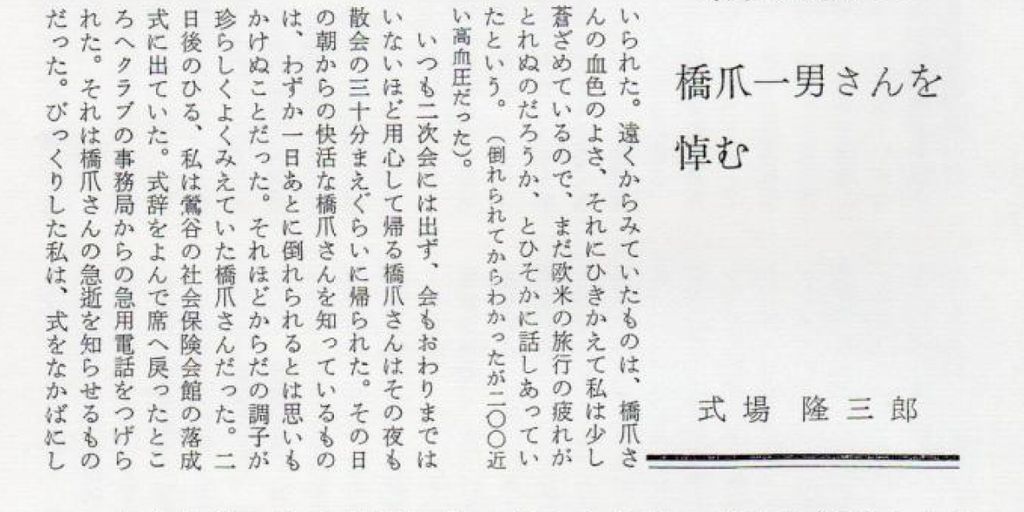 橋爪一男さんを
悼む
式場 隆三郎
いられた。遠くからみていたものは、橋爪さ
んの血色のよさ、それにひきかえて私は少し
蒼ざめているので、まだ欧米の旅行の疲れが
とれぬのだろうか、とひそかに話しあってい
たという。（倒れられてからわかったが二〇〇近
い高血圧だった）。
いつも二次会には出ず、会もおわりまでは
いないほど用心して帰る橋爪さんはその夜も
散会の三十分まえぐらいに帰られた。その日
の朝からの快活な橋爪さんを知っているもの
は、わずか一日あとに倒れられるとは思いも
かけぬことだった。それほどからだの調子が
珍らしくよくみえていた橋爪さんだった。二
日後のひる、私は鶯谷の社会保険会館の落成
式に出ていた。式辞をよんで席へ戻ったとこ
ろへクラブの事務局からの急用電話をつげら
れた。それは橋爪さんの急逝を知らせるもの
だった。びっくりした私は、式をなかばにし